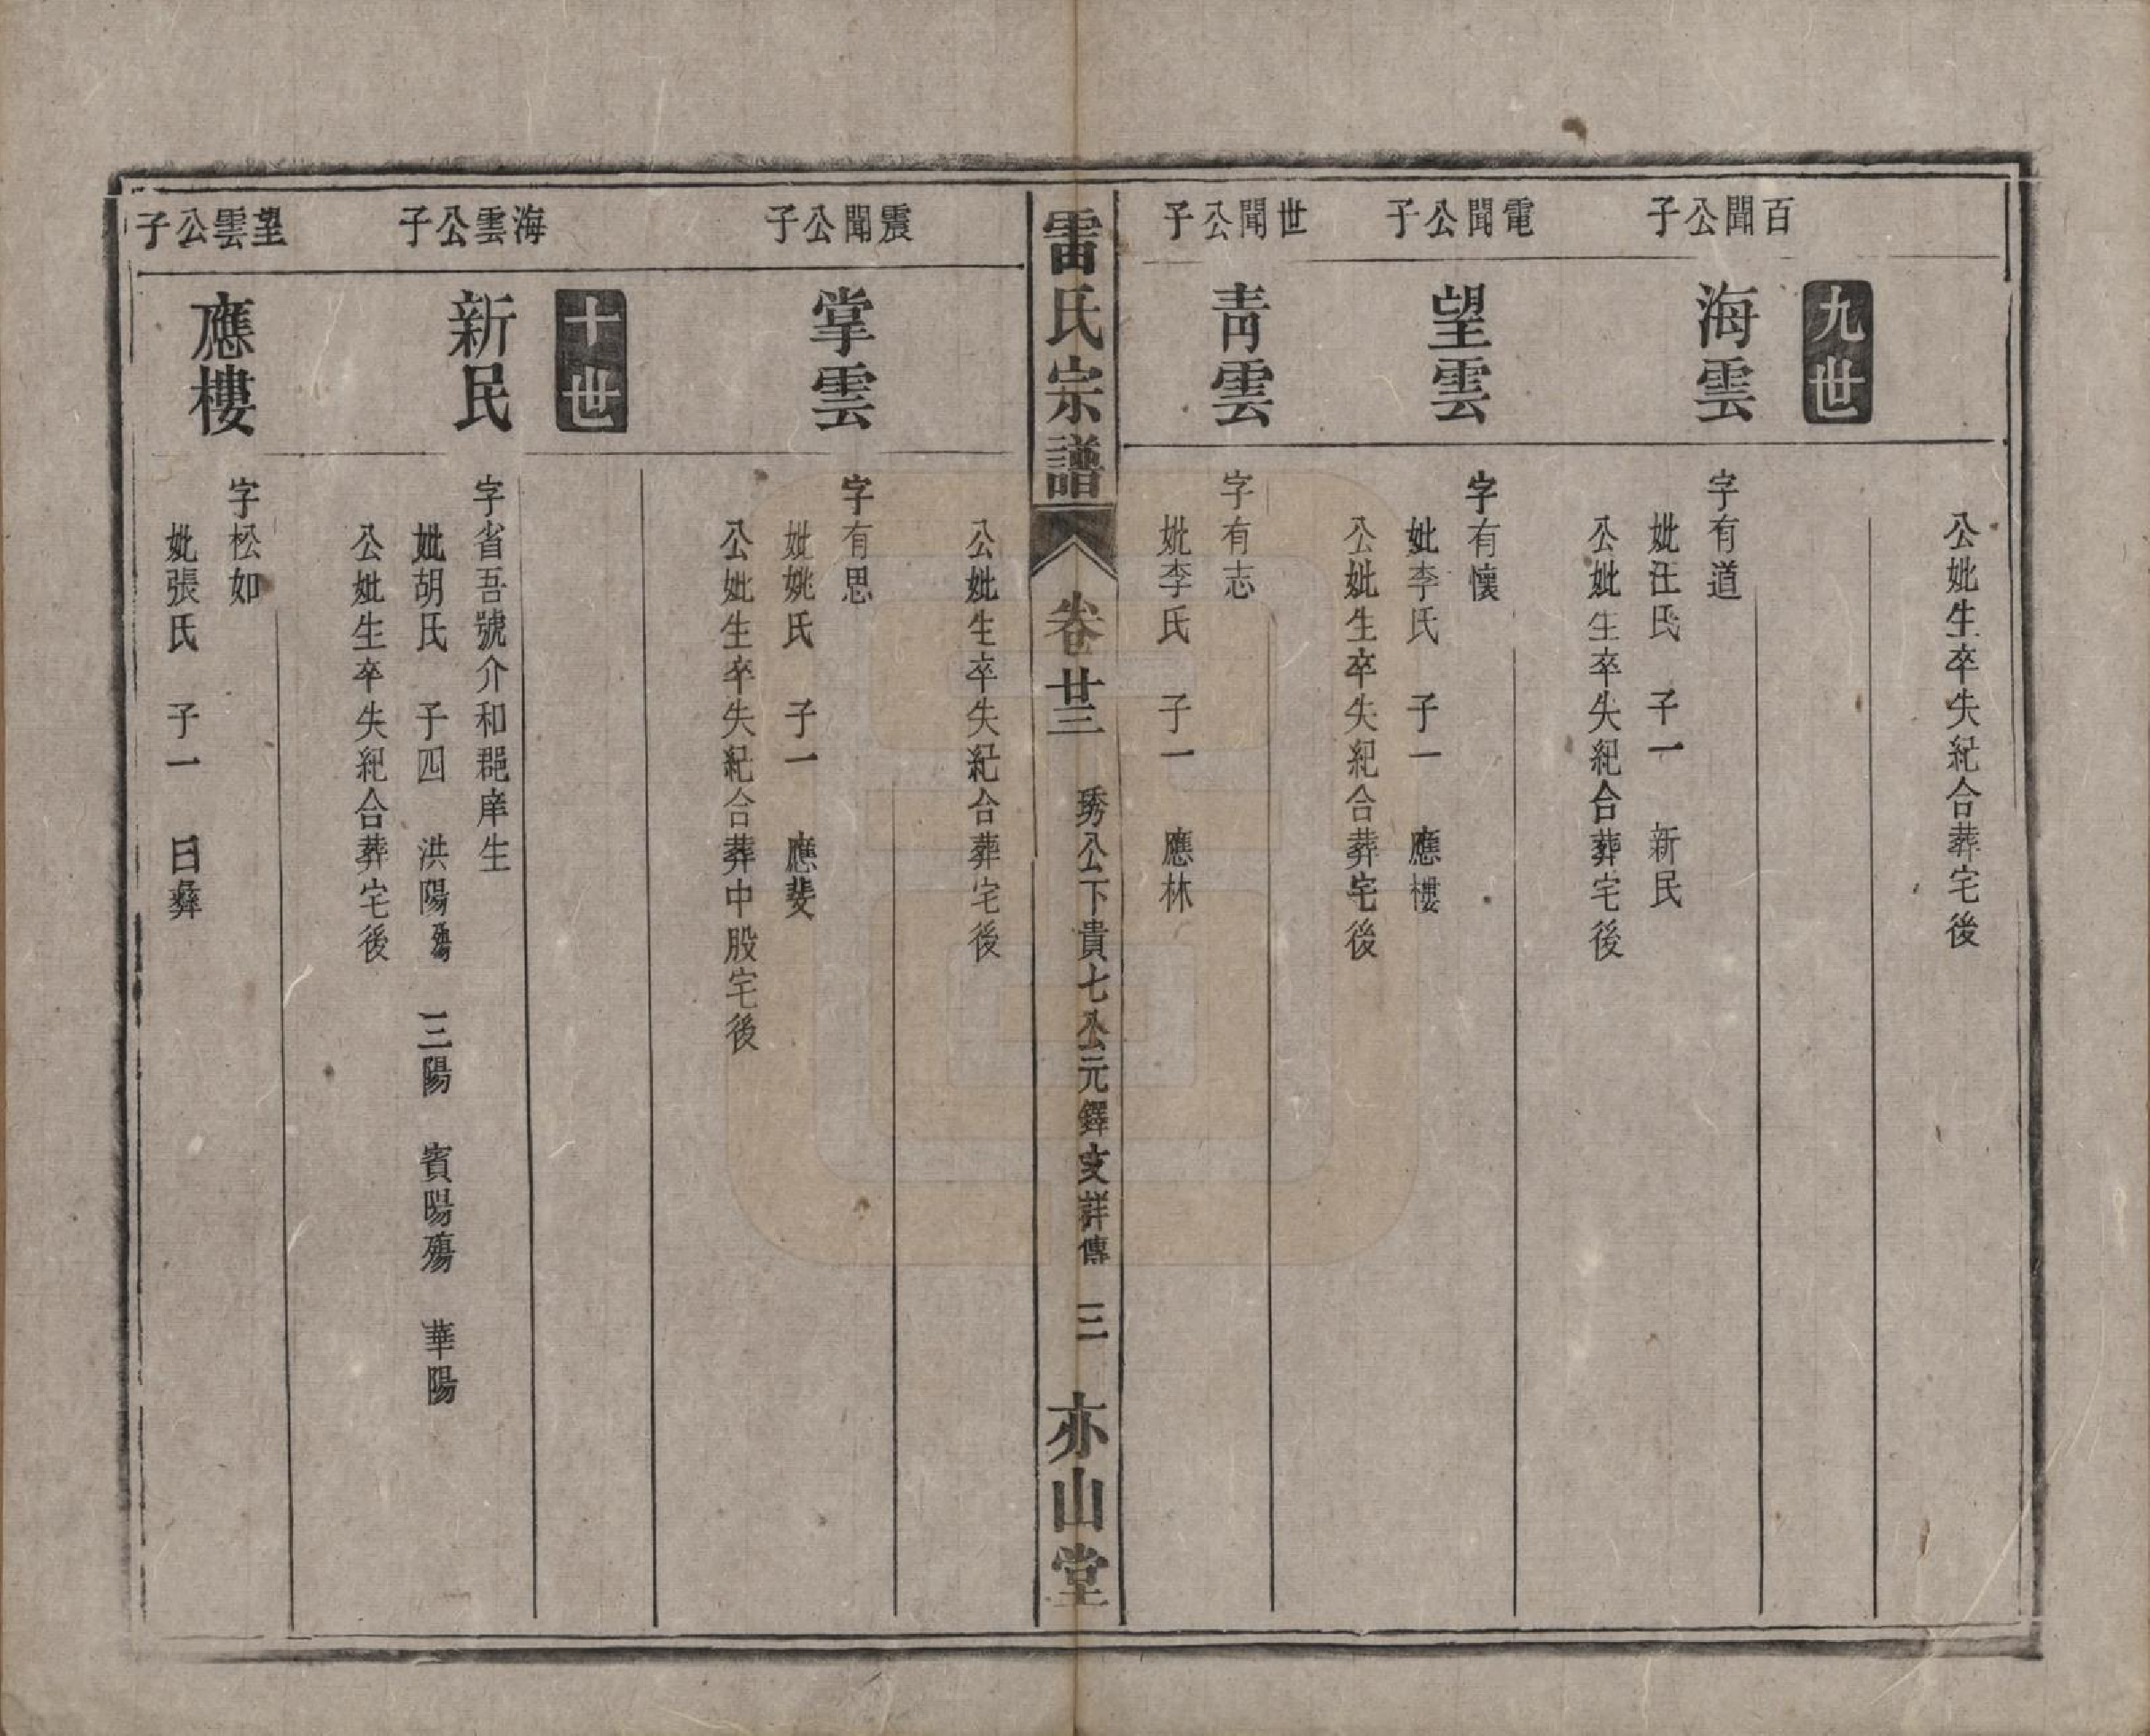 公妣生卒失紀合葬宅後
九世
百聞公子
海雲
字有道
妣汪氏　子一　新民
公妣生卒失紀合葬宅後
電聞公子
望雲
字有懷
妣李氏　子一　應樓
公妣生卒失紀合葬宅後
世聞公子
青雲
字有志
妣李氏　子一　應林
雷氏宗譜
卷廿三
琇公下貴七公元鐸支詳傳
三
亦山堂
公妣生卒失紀合葬宅後
震聞公子
掌雲
字有思
妣姚氏　子一　應斐
公妣生卒失紀合葬中股宅後
十世
海雲公子
新民
字省吾號介和郡庠生
妣胡氏　子四　洪陽殤　三陽　賓陽殤　華陽
公妣生卒失紀合葬宅後
望雲公子
應樓
字松如
妣張氏　子一　曰彝